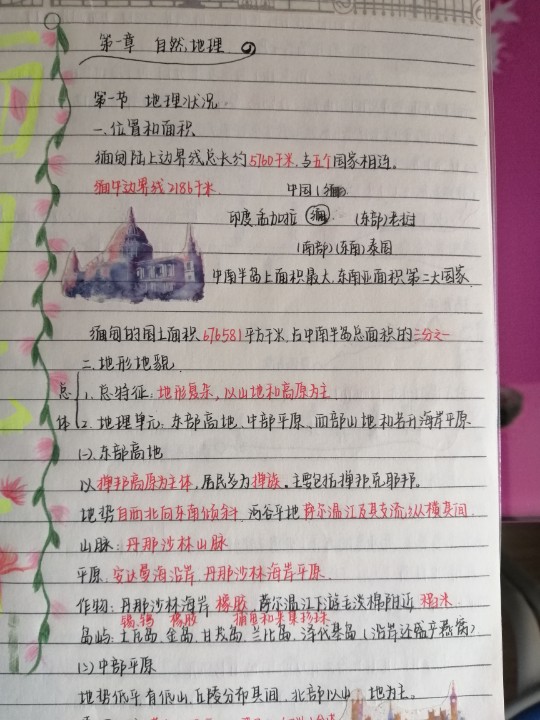 第一章 自然地理
第一节 地理状况
一、位置和面积
缅甸陆上边界线总长约5760千米,与五个国家相连。
缅中边界线2186千米 中国(缅
印度 孟加拉 缅 (东部)老挝
(南部)(东南)泰国
中南半岛上面积最大,东南亚面积第二大国家
缅甸的国土面积676581平方千米,占中南半岛总面积的三分之一
二、地形地貌
总体
1. 总特征:地形复杂,以山地和高原为主
2. 地理单元:东部高地、中部平原、西部山地和若开海岸平原
(一)、东部高地
以掸邦高原为主体,居民多为掸族。主要包括掸邦克耶邦。
地势自西北向东南倾斜 河谷平地 萨尔温江及其支流纵横其间
山脉:丹那沙林山脉
平原:安达曼海沿岸 丹那沙林海岸平原
作物:丹那沙林海岸 橡胶 萨尔温江下游毛淡棉附近 稻米
锡、钨 橡胶 捕鱼和采集珍珠
岛屿:土瓦岛、金岛、甘玫岛、兰比岛、泽代基岛(沿岸还盛产燕窝)
(二)中部平原
地势低平有低山、丘陵分布其间,北部以山 地为主。